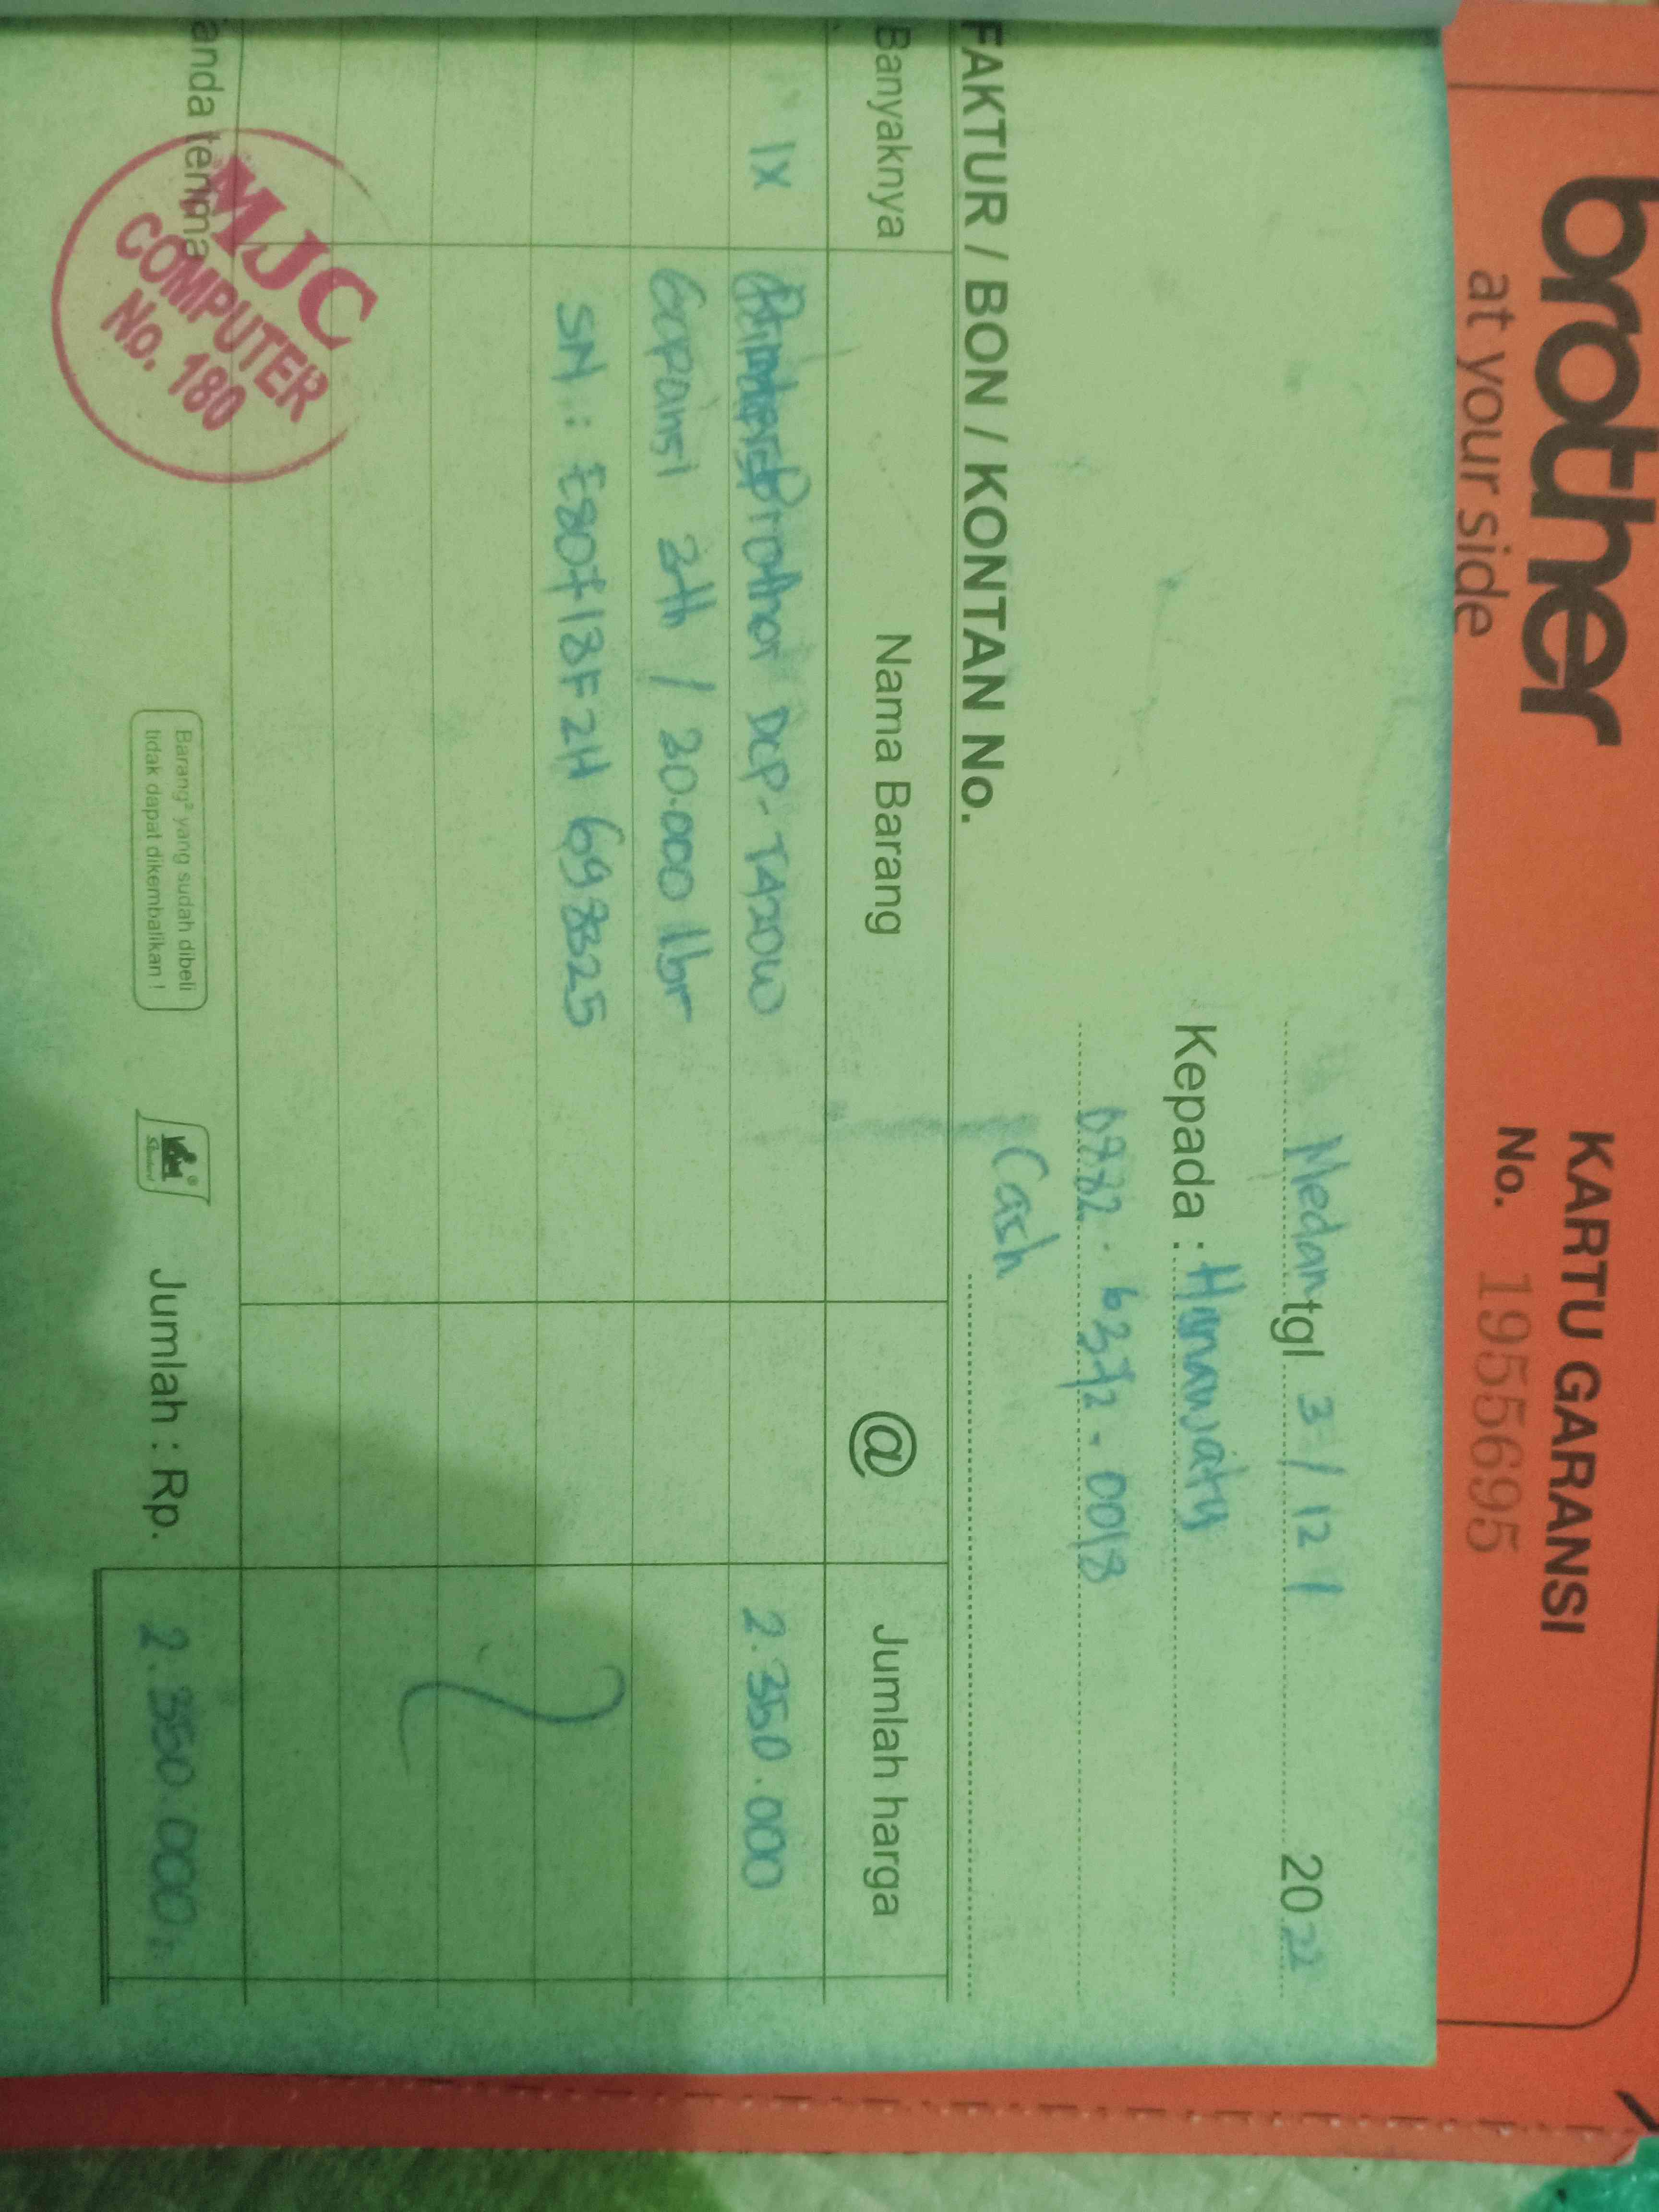 brother
at your side
KARTU GARANSI
No. 1955695
Medan tgl 3/12/ 2022
Kepada : Hanawaty
0882. 6372. 0018
Cash
FAKTUR / BON / KONTAN No.
Banyaknya Nama Barang @ Jumlah harga
1x Brother DCP-T420W 2.350.000
Garansi 2th / 30.000 lbr
SN : E80713F2H698325
anda terima
MJC
COMPUTER
No. 180
Barang² yang sudah dibeli
tidak dapat dikembalikan !
Jumlah : Rp. 2.350.000